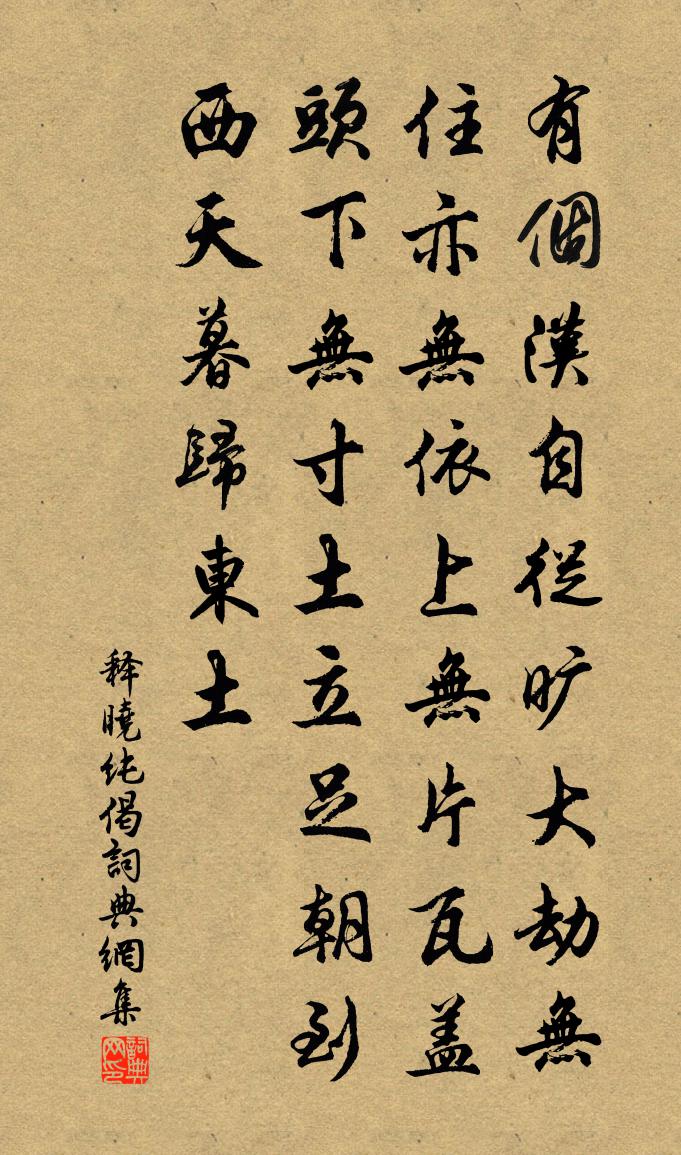 有個漢自從旷大劫無
住亦無依上無片瓦盖
頭下無寸土立足朝到
西天暮歸東土
释曉纯偈詞典網集
詞典
网印